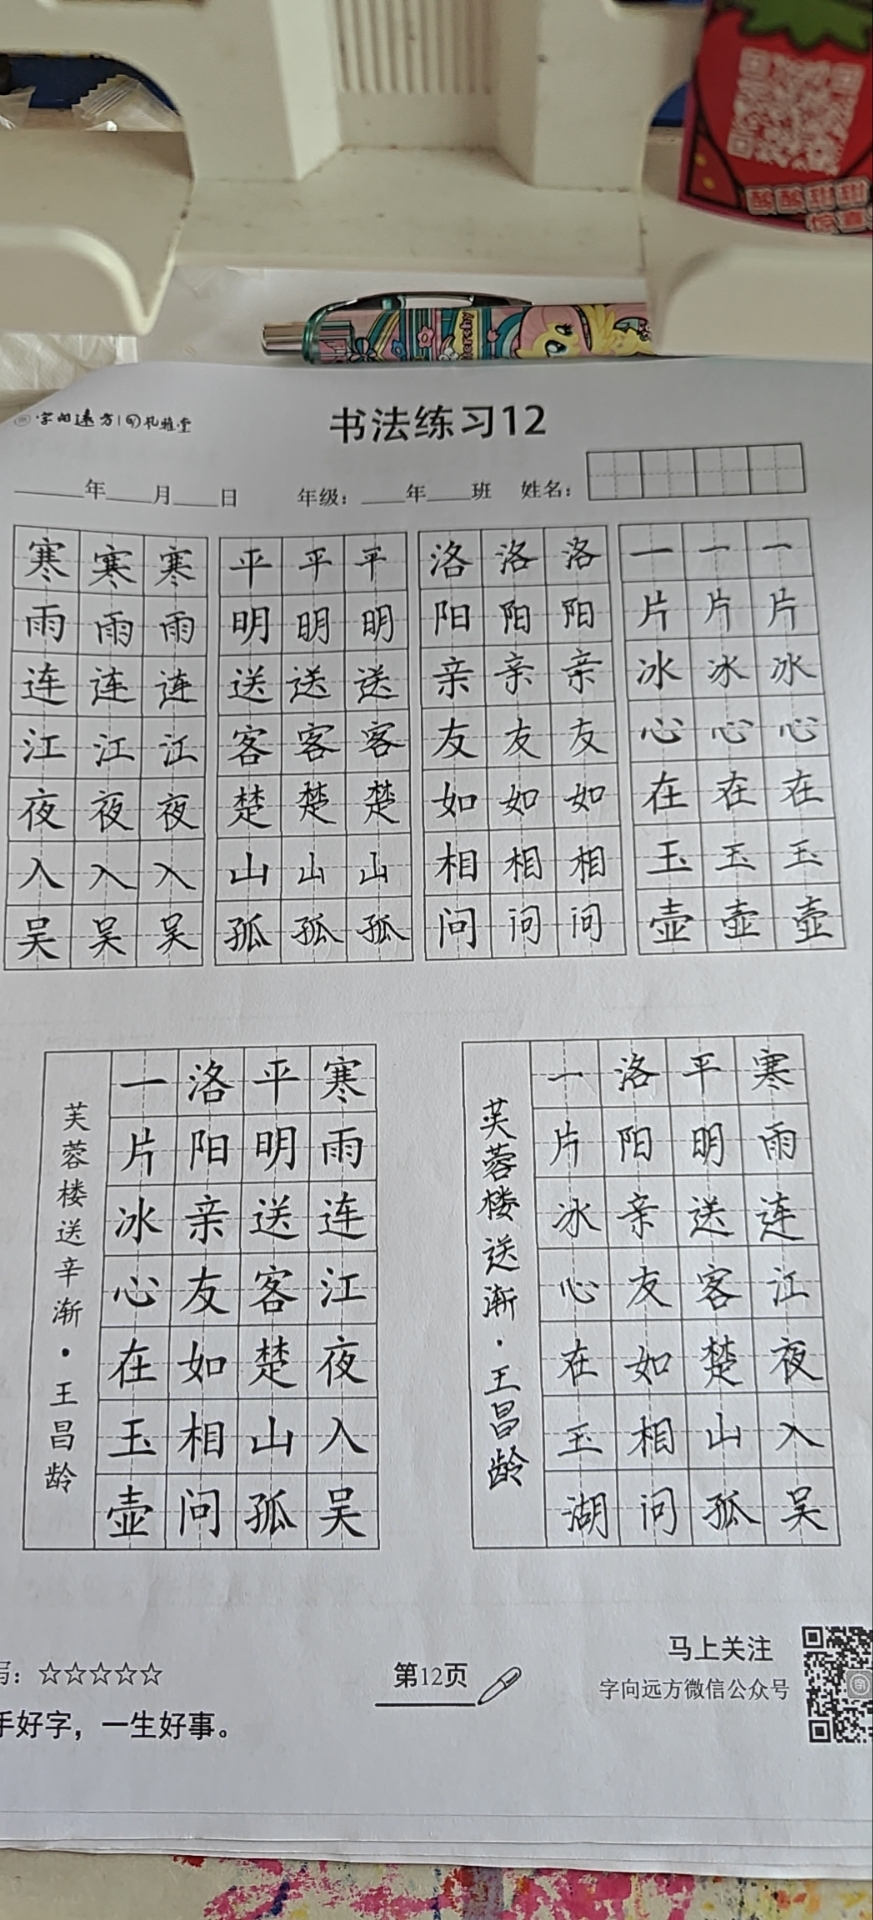 酸酸甜甜
惊喜
Fluttershy
字向远方 礼雅堂
书法练习12
年 月 日 年级: 年 班 姓名:
寒 寒 寒 平 平 平 洛 洛 洛 一 一 一
雨 雨 雨 明 明 明 阳 阳 阳 片 片 片
连 连 连 送 送 送 亲 亲 亲 冰 冰 冰
江 江 江 客 客 客 友 友 友 心 心 心
夜 夜 夜 楚 楚 楚 如 如 如 在 在 在
入 入 入 山 山 山 相 相 相 玉 玉 玉
吴 吴 吴 孤 孤 孤 问 问 问 壶 壶 壶
寒雨连江夜入吴
平明送客楚山孤
洛阳亲友如相问
一片冰心在玉壶
芙蓉楼送辛渐·王昌龄
寒雨连江夜入吴
平明送客楚山孤
洛阳亲友如相问
一片冰心在玉湖
芙蓉楼送渐·王昌龄
写:☆☆☆☆☆
手好字,一生好事。
第12页
马上关注
字向远方微信公众号